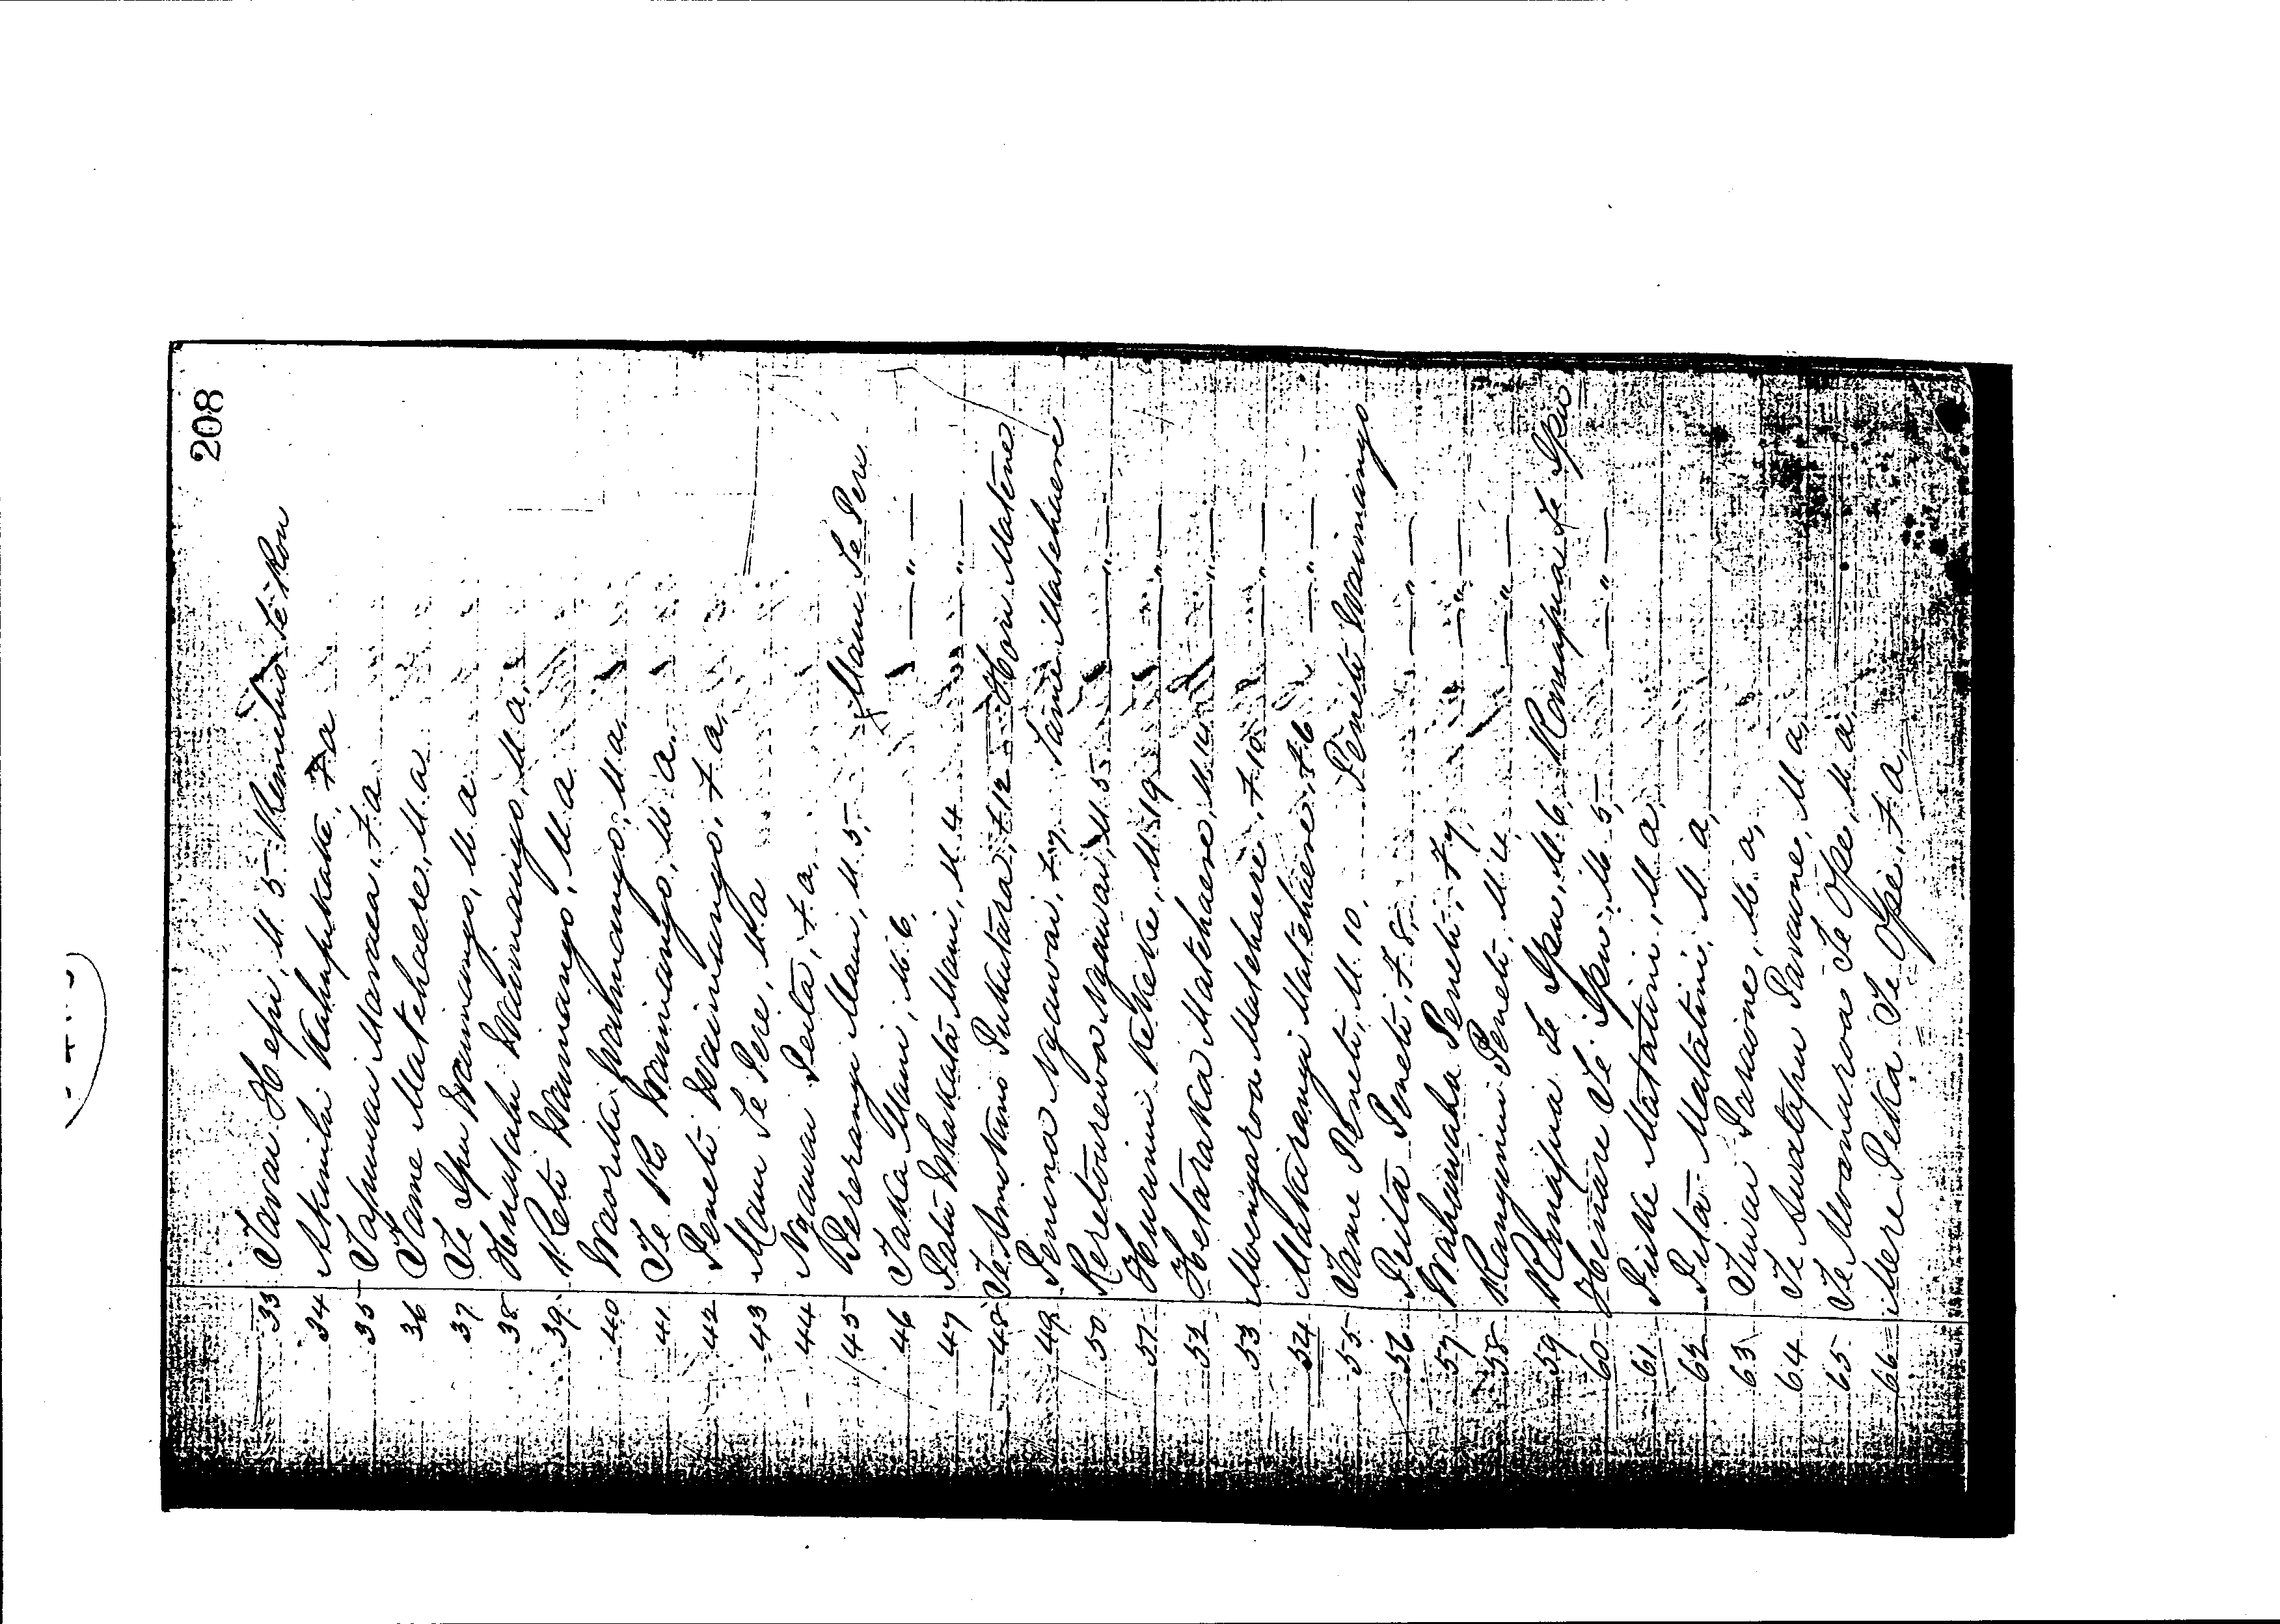 208
33 Tavai Hepi, M. 5. Remihio Te Kou
34 Akinihi Kahupukatte, F a
35 Tapuwai Maraea, F. a
36 Tame Matehaere, M. a
37 Te Ipu Waimango, M. a
38 Henatahu Waimaingo, M. a.
39 Reti Waimango, M. a
40 Waoriki Waimango, M. a.
41 Te Ko Waimango, M. a.
42 Peneti Waimango, F. a.
43 Mani Te Pere, M. a
44 Ngawai Peita, F. a.
45 Pererangi Mani, M. 5. Mani Te Pere
46 Taka Mani, M. 6. — " —
47 Patu Whakata Mani, M. 4 — " —
48 Te Amo Nano Pukutara, F. 12 Hori Matene
49 Penina Ngawai, F. 7. Tame Matehaere
50 Keretourewa Ngawai, M. 5 — " —
51 Hurinui Kekeke, M. 19 — " —
52 Hetaraka Matehaere, M. 14 — " —
53 Moengaroa Matehaere, F. 10 — " —
54 Makarangi Matehaere, F. 6 — " —
55 Tame Peneti, M. 10. Peneti Waimango
56 Peita Peneti, F. 8. — " —
57 Wahawaha Peneti, F 7. — " —
58 Rangimu Peneti, M. 4. — " —
59 Ronapua Te Ipu, M. 6, Ronapuai Te Ipu
60 Henare Te Ipu, M. 5. — " —
61 Puke Matatini, M. a.
62 Pita Matatini, M. a,
63 Iwai Paraone, M. a,
64 Te Awatapu Paraone, M. a,
65 Te Moanaroa Te Ope, M. a.
66 Mere Peka Te Ope, F. a,